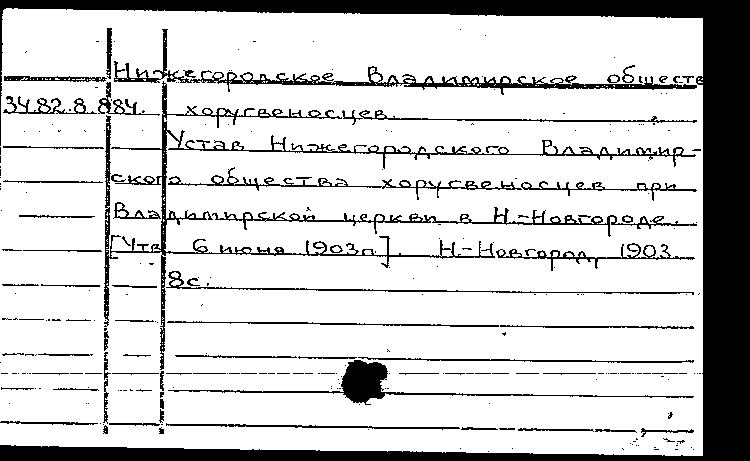 Нижегородское Владимирское обществ
34.82.8.884. хоругвеносцев.
Устав Нижегородского Владимир-
ского общества хоругвеносцев при
Владимирской церкви в Н.-Новгороде.
[Утв. 6 июня 1903г.]. Н.-Новгород, 1903.
8с.